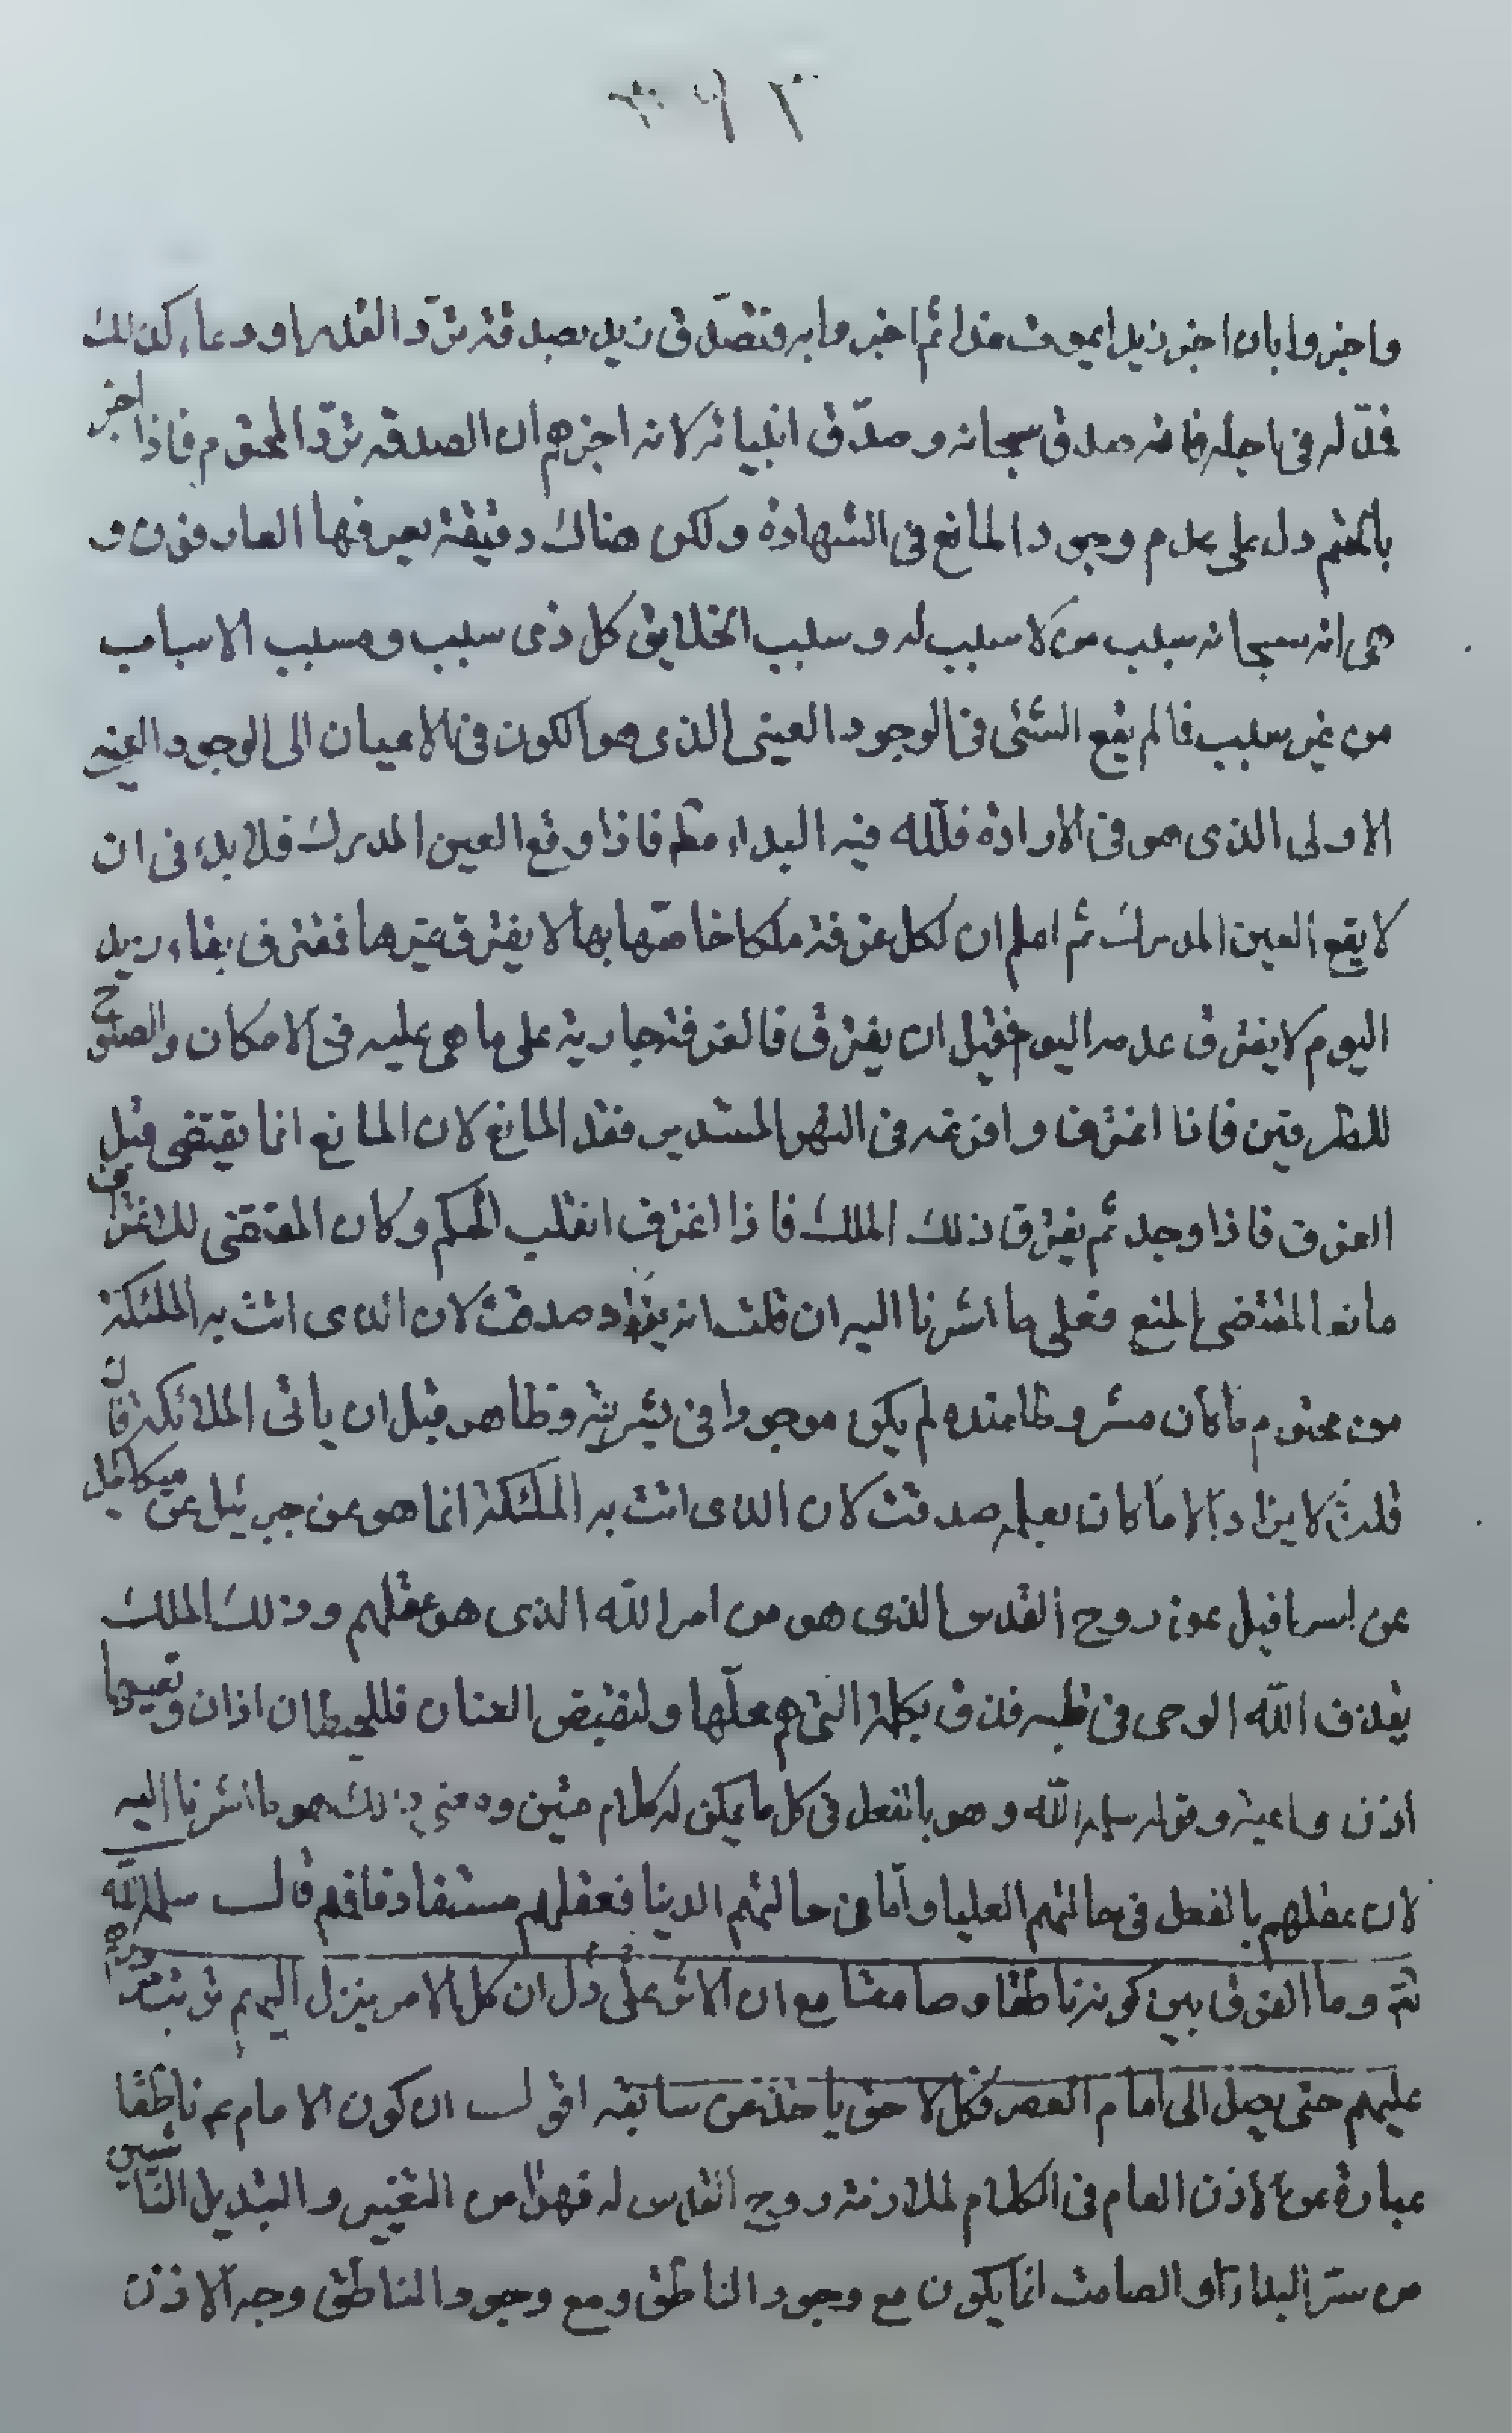 واخبروا بان اخبر زيدا يموت غدا ثم اخبروا به فتصدق زيد بصدقة تردّ القدر او دعاء كذلك
فمدّ له فى اجله فانه صدق سبحانه وصدّق انبيائه لانه اخبرهم ان الصدقه تردّ المحتوم فاذا اخبر
بالحتم دل على عدم وجود المانع فى الشهادة ولكن هناك دقيقة يعرفها العارفون و
هى انه سبحانه سبب من لا سبب له و سبب الخلايق كل ذى سبب ومسبب الاسباب
من غير سبب فالم يقع الشئى فى الوجود العينى الذى هو الكون فى الاعيان الى الوجود العينى
الاولى الذى هو فى الارادة فللّه فيه البداء مط فاذا وقع العين المدرك فلا بداء فى ان
لا يقع العين المدرك ثم اعلم ان لكل غرفة ملكا خاصّا بها لا يغترف غيرها فغترف بقاء زيد
اليوم لا يغترف عدمه اليوم فقبل ان يغترف فالغرفة جارية على ما هى عليه فى الامكان والصلوح
للطرفين فاذا اغترف وافرغه فى النهر المستدير فقد المانع لان المانع انما يقتضى قبل
الغرف فاذا وجد ثم يغترف ذلك الملك فاذا اغترف انقلب الحكم وكان المقتضى للاغتراف
مانعا لمقتضى المنع فعلى ما اشرنا اليه ان قلت انه يزاد صدقت لان الذى اتت به الملئكة
من محتوم ما كان مشروطا عنده لم يكن موجودا فى بشريته وظاهره قبل ان ياتى الملائكة فان
قلت لا يزاد الا ما كان يعلمه صدقت لان الذى اتت به الملئكة انما هو عن جبرئيل عن ميكائيل
عن اسرافيل عن روح القدس الذى هو من امر اللّه الذى هو عقلهم وذلك الملك
يقذف اللّه الوحى فى قلبه قذف بكلمة التى هم محلّها ولنقبض العنان فللحيطان اذان وتعيها
اذن واعية وقوله سلمه اللّه وهو بالفعل فى كل ما يمكن له كلام متين ومعنى ذلك هو ما اشرنا اليه
لان عقلهم بالفعل فى حالتهم العليا وامّا فى حالتهم الدنيا فعقلهم مستفاد فافهم قال سلمه اللّه
وما الفرق بين كونه ناطقا وصامتا مع ان الاثر على دلّ ان كل الامر ينزل اليهم ترتيب
عليهم حتى يصل الى امام العصر فكل لاحق ياخذ من سابقه اقول ان كون الامام عم ناطقا
عبارة عن الاذن العام فى الكلام لملازمة روح القدس له قهرا من التغيير والتبديل الناشيين
من ستر البداء او الصامت انما يكون مع وجود الناطق ومع وجود الناطق وجه الاذن